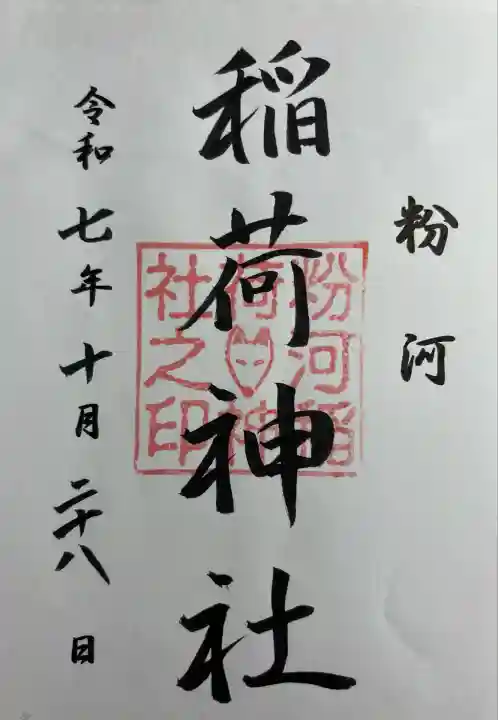 粉河
稲荷神社
粉河稲
荷神
社之印
令和七年十月二十八日